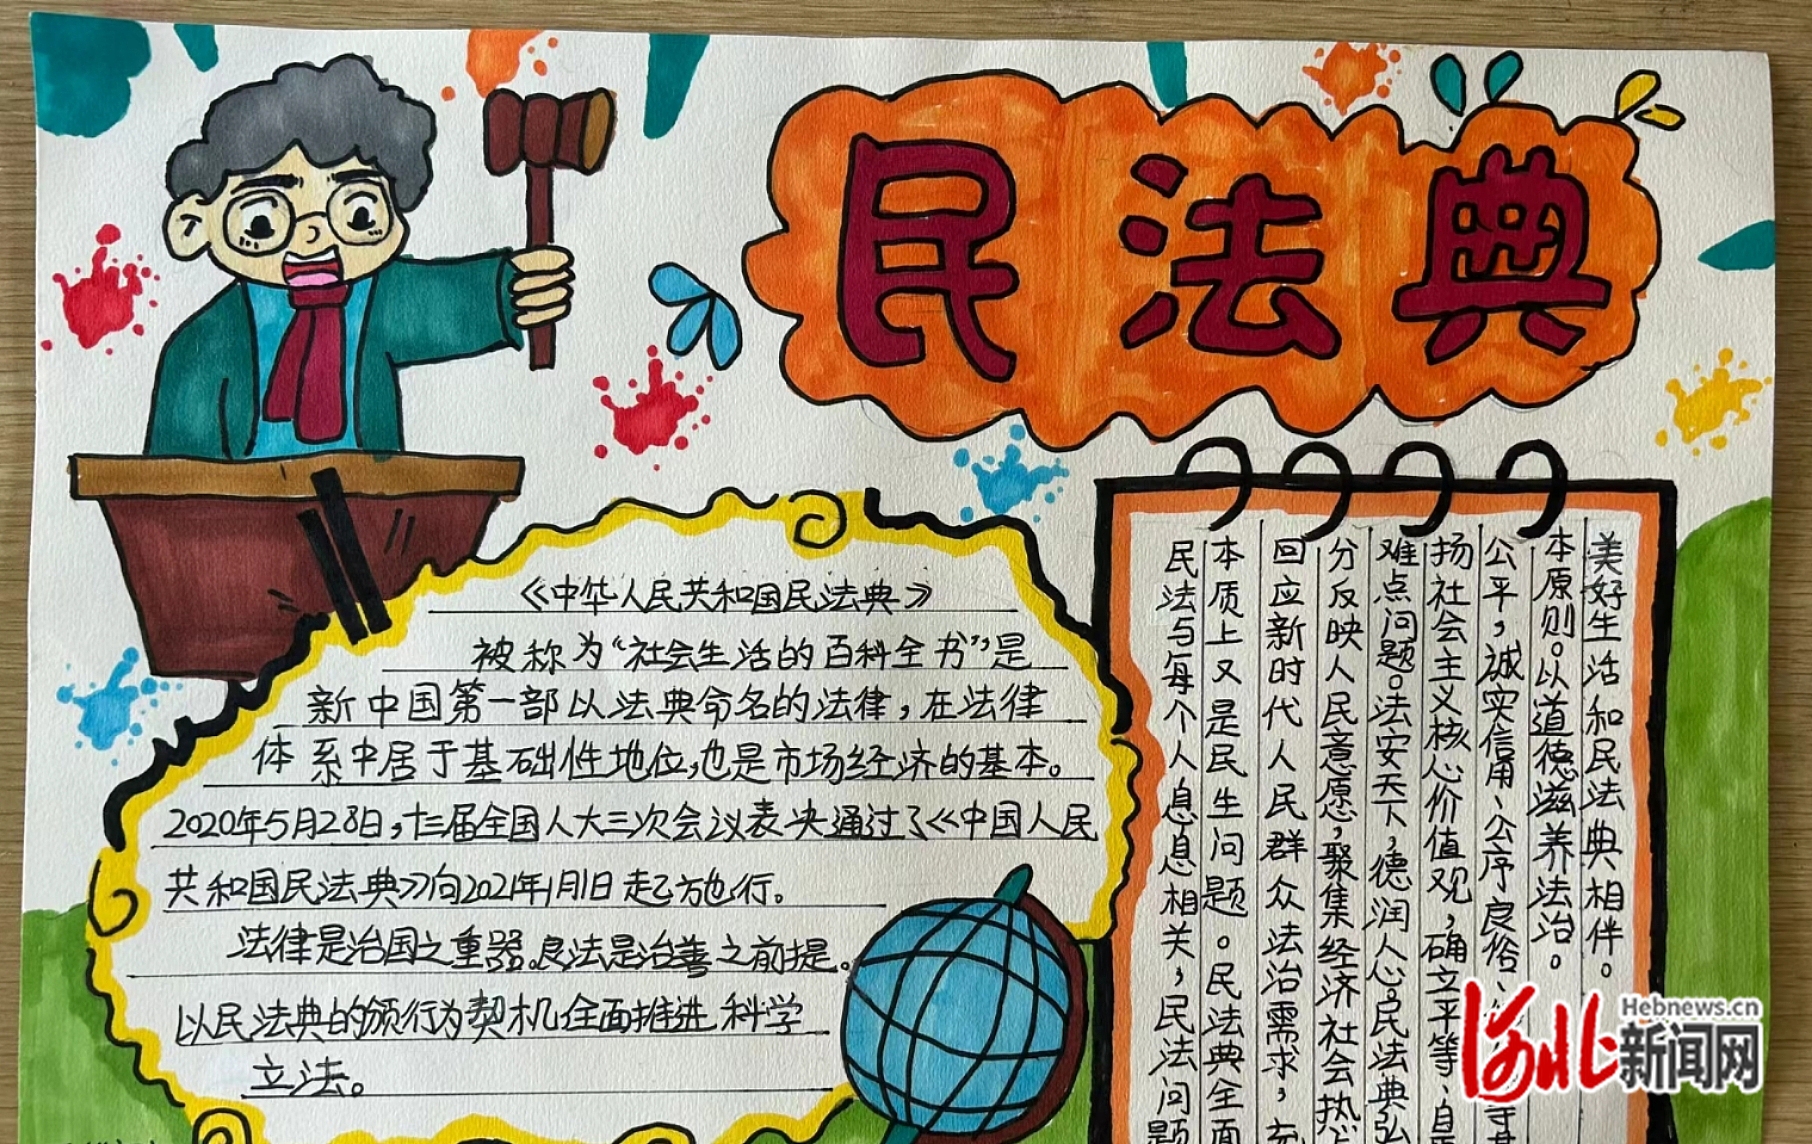 民法典
《中华人民共和国民法典》
被称为“社会生活的百科全书”,是
新中国第一部以法典命名的法律,在法律
体系中居于基础性地位,也是市场经济的基本。
2020年5月28日,十三届全国人大三次会议表决通过了《中国人民
共和国民法典》向2021年1月1日起施行。
法律是治国之重器。良法是治善之前提。
以民法典的颁行为契机全面推进科学
立法。
民法与每个人息息相关,民法问题
本质上又是民生问题。民法典全面
回应新时代人民群众法治需求,充
分反映人民意愿,聚集经济社会热
难点问题。法安天下,德润人心。民法典弘
扬社会主义核心价值观,确立平等、自
公平,诚实信用、公序良俗、
本原则。以道德滋养法治。
美好生活和民法典相伴。
Hebnews.cn
河北新闻网